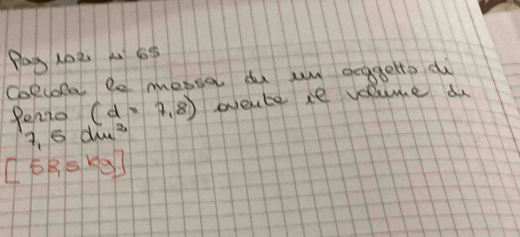 Pag 102 n° 65
Calcola la massa di un oggetto di
ferro (d = 7,8) avente il volume di
7,5 dm³
[58,5 kg]